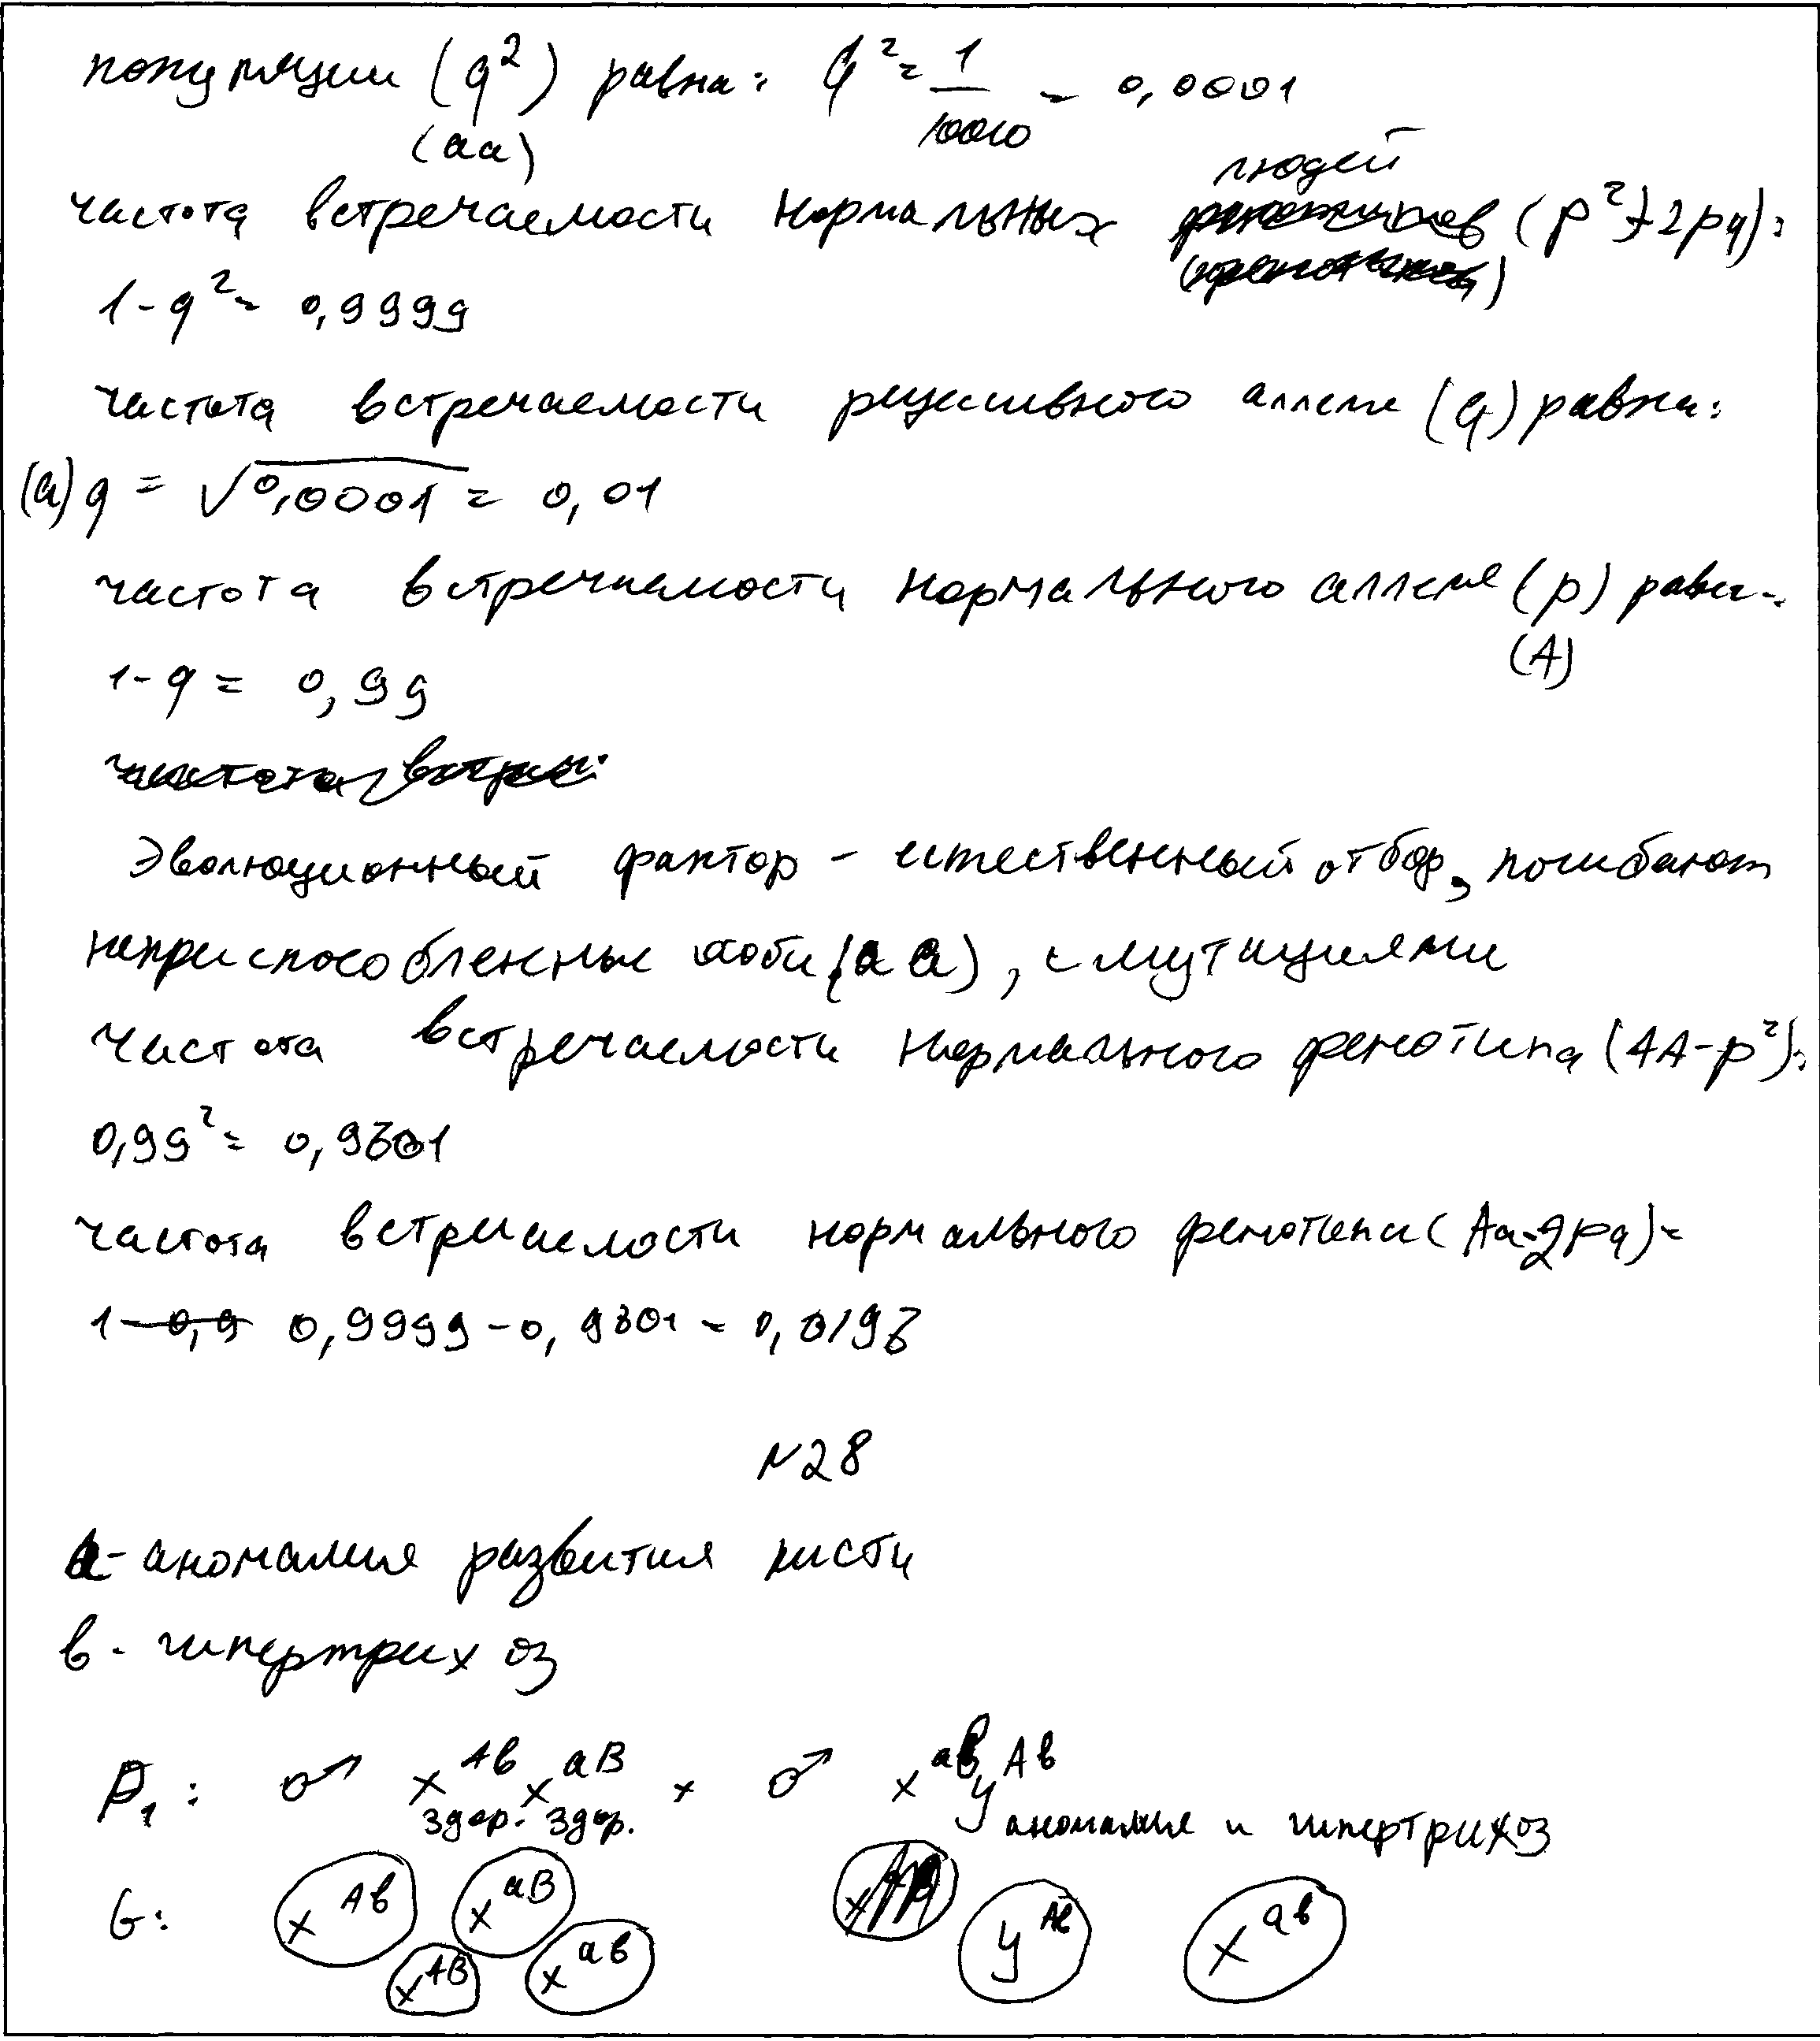 популяции (q²) равна: q² = 1/10000 = 0,0001
(аа)
людей
частота встречаемости нормальных (p²+2pq):
1-q² = 0,9999
частота встречаемости рецессивного аллеля (q) равна:
(а) q = √0,0001 = 0,01
частота встречаемости нормального аллеля (p) равн-
(А)
1-q = 0,99
Эволюционный фактор - естественный отбор, погибают
неприспособленные особи (аа), с мутациями
Частота встречаемости нормального фенотипа (АА-p²):
0,99² = 0,9801
частота встречаемости нормального фенотипа (Аа-2pq)=
0,9999-0,9801 = 0,0198
N28
а- аномалия развития кисти
в- гипертрихоз
P₁: ♂ x^Ав x^аВ × ♂ x^ав y^Ав
здор. здор. аномалия и гипертрихоз
G: x^Ав x^аВ y^Ав x^ав
x^АВ x^ав